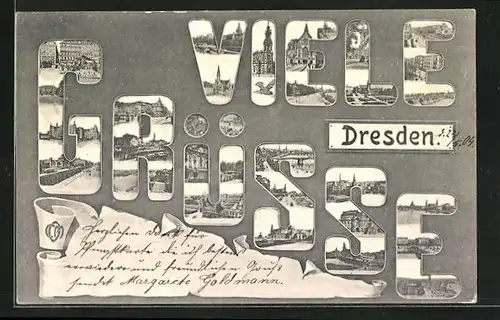 VIELE
GRÜSSE
Dresden.
Herzlichen Dank für
die ich bestens
erwiedere und freundlichen Gruß
sendet Margarete Goldmann.